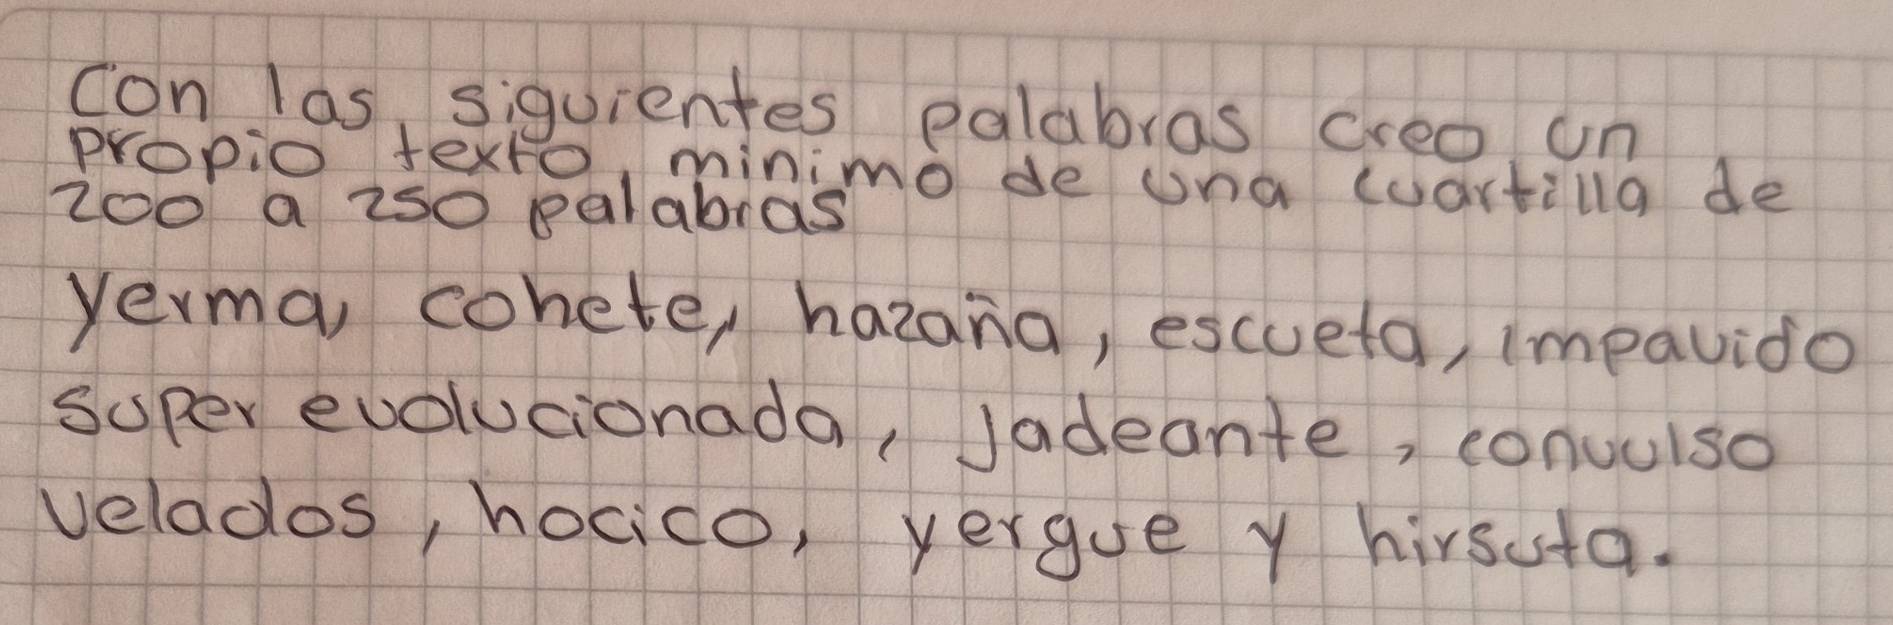 Con las siguientes palabras creo un
propio texto, minimo de una cuartilla de
200 a 250 palabras
yerma, cohete, hazaña, escueta, impavido
super evolucionada, Jadeante, convulso
velados, hocico, yergue y hirsuta.